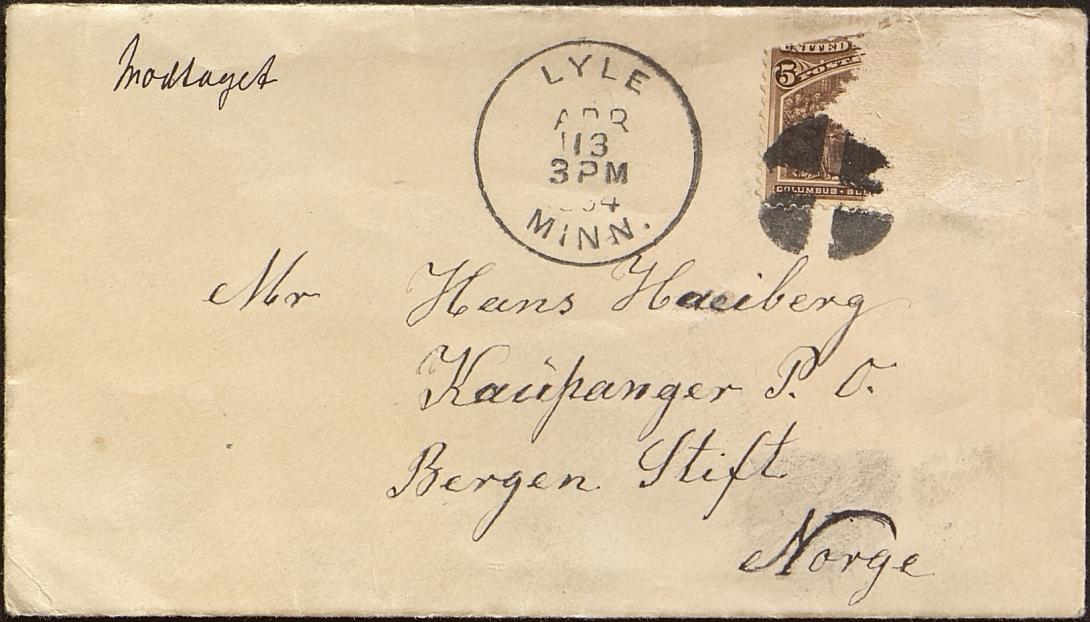 Modtaget
LYLE
APR
13
3 PM
MINN.
UNITED
5
COLUMBUS
Mr Hans Haeiberg
Kaŭpanger P. O.
Bergen Stift
Norge